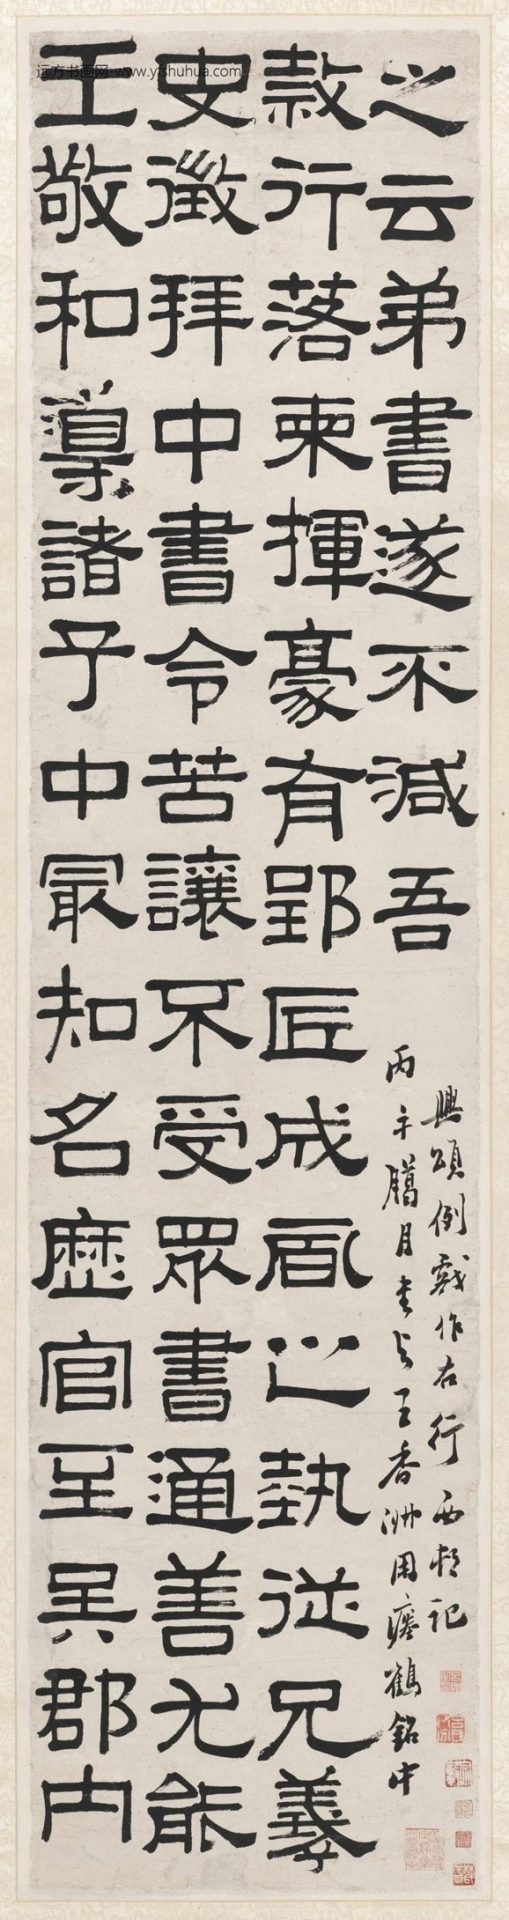 远方书画网-www.yfshuhua.com
王敬和導諸子中冣知名歷官至吳郡內
史徵拜中書令苦讓不受眾書通善尤能
隸行落柬揮豪有郢匠成風之埶從兄羲
之云弟書遂不減吾
丙子臘月書与王香洲用瘞鶴銘中
興頌例戲作右行 西 記